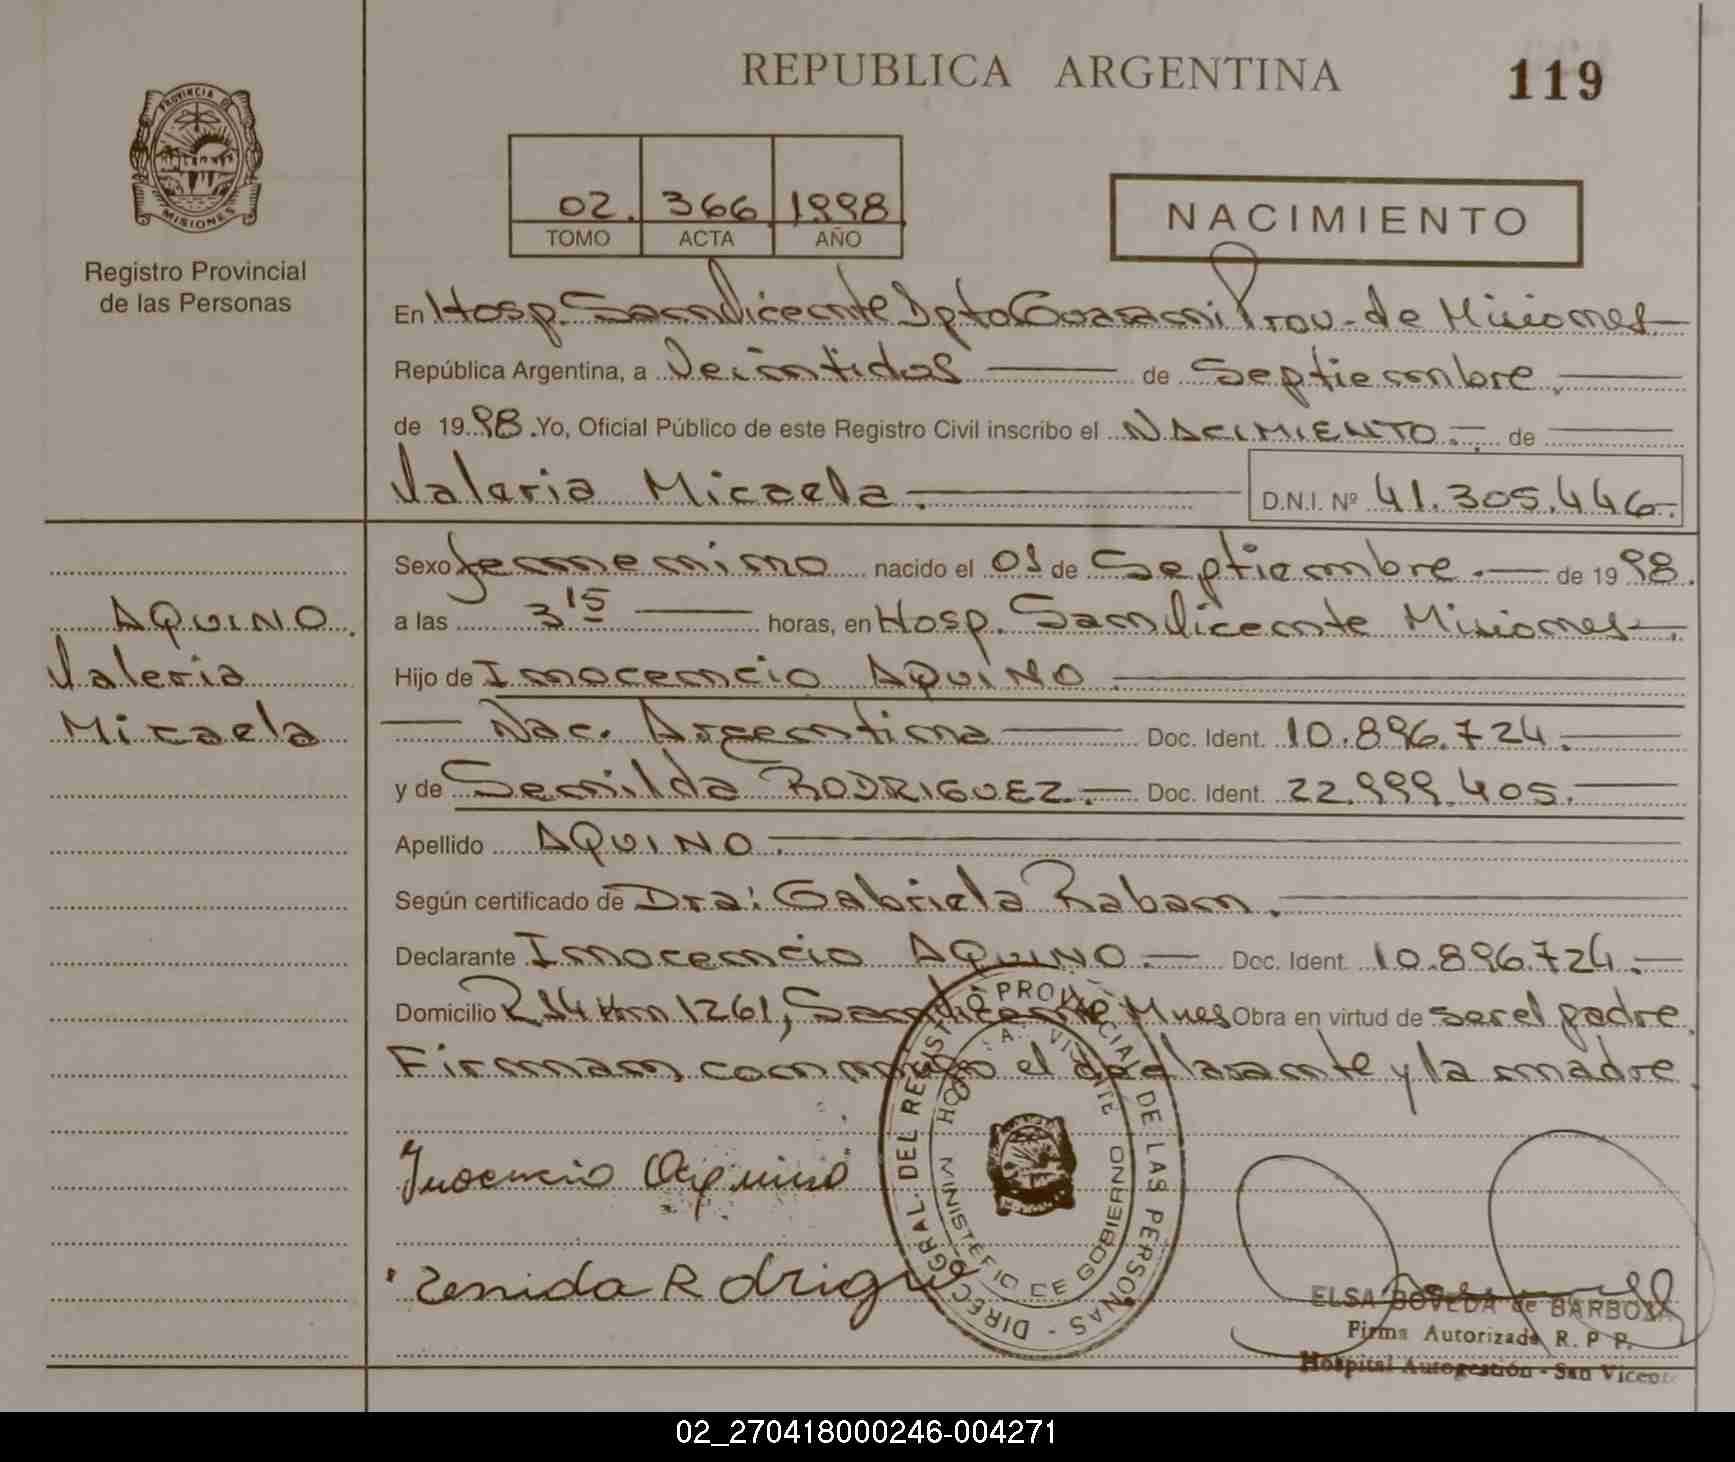 REPUBLICA ARGENTINA
119
PROVINCIA DE
MISIONES
Registro Provincial
de las Personas
02. 366 1998
TOMO ACTA AÑO
NACIMIENTO
En Hosp. San Vicente Dpto Guarani Prov. de Misiones
República Argentina, a Veintidos de Septiembre.
de 19 98. Yo, Oficial Público de este Registro Civil inscribo el NACIMIENTO.- de
Valeria Micaela. D.N.I. Nº 41.305.446.-
Sexo femenino nacido el 01 de Septiembre.- de 19 98.
AQUINO.
Valeria
Micaela
a las 3 15 horas, en Hosp. San Vicente Misiones.
Hijo de Inocencio AQUINO.
Nac. Argentina Doc. Ident. 10.896.724.
y de Senilda RODRIGUEZ.- Doc. Ident. 22.999.405.
Apellido AQUINO.
Según certificado de Dra: Gabriela Raban.
Declarante Inocencio AQUINO.- Doc. Ident. 10.896.724.-
Domicilio R 14 Km 1261, San Vicente Mnes Obra en virtud de ser el padre.
Firman conmigo el declarante y la madre.
Inocencio Aquino
DIREC. GRAL DEL REGISTRO PROVINCIAL DE LAS PERSONAS -
MINISTERIO DE GOBIERNO
ELSA BOVEDA de BARBOZA
Firma Autorizada R. P P.
Hospital Autogestión - San Vicente
02_270418000246-004271